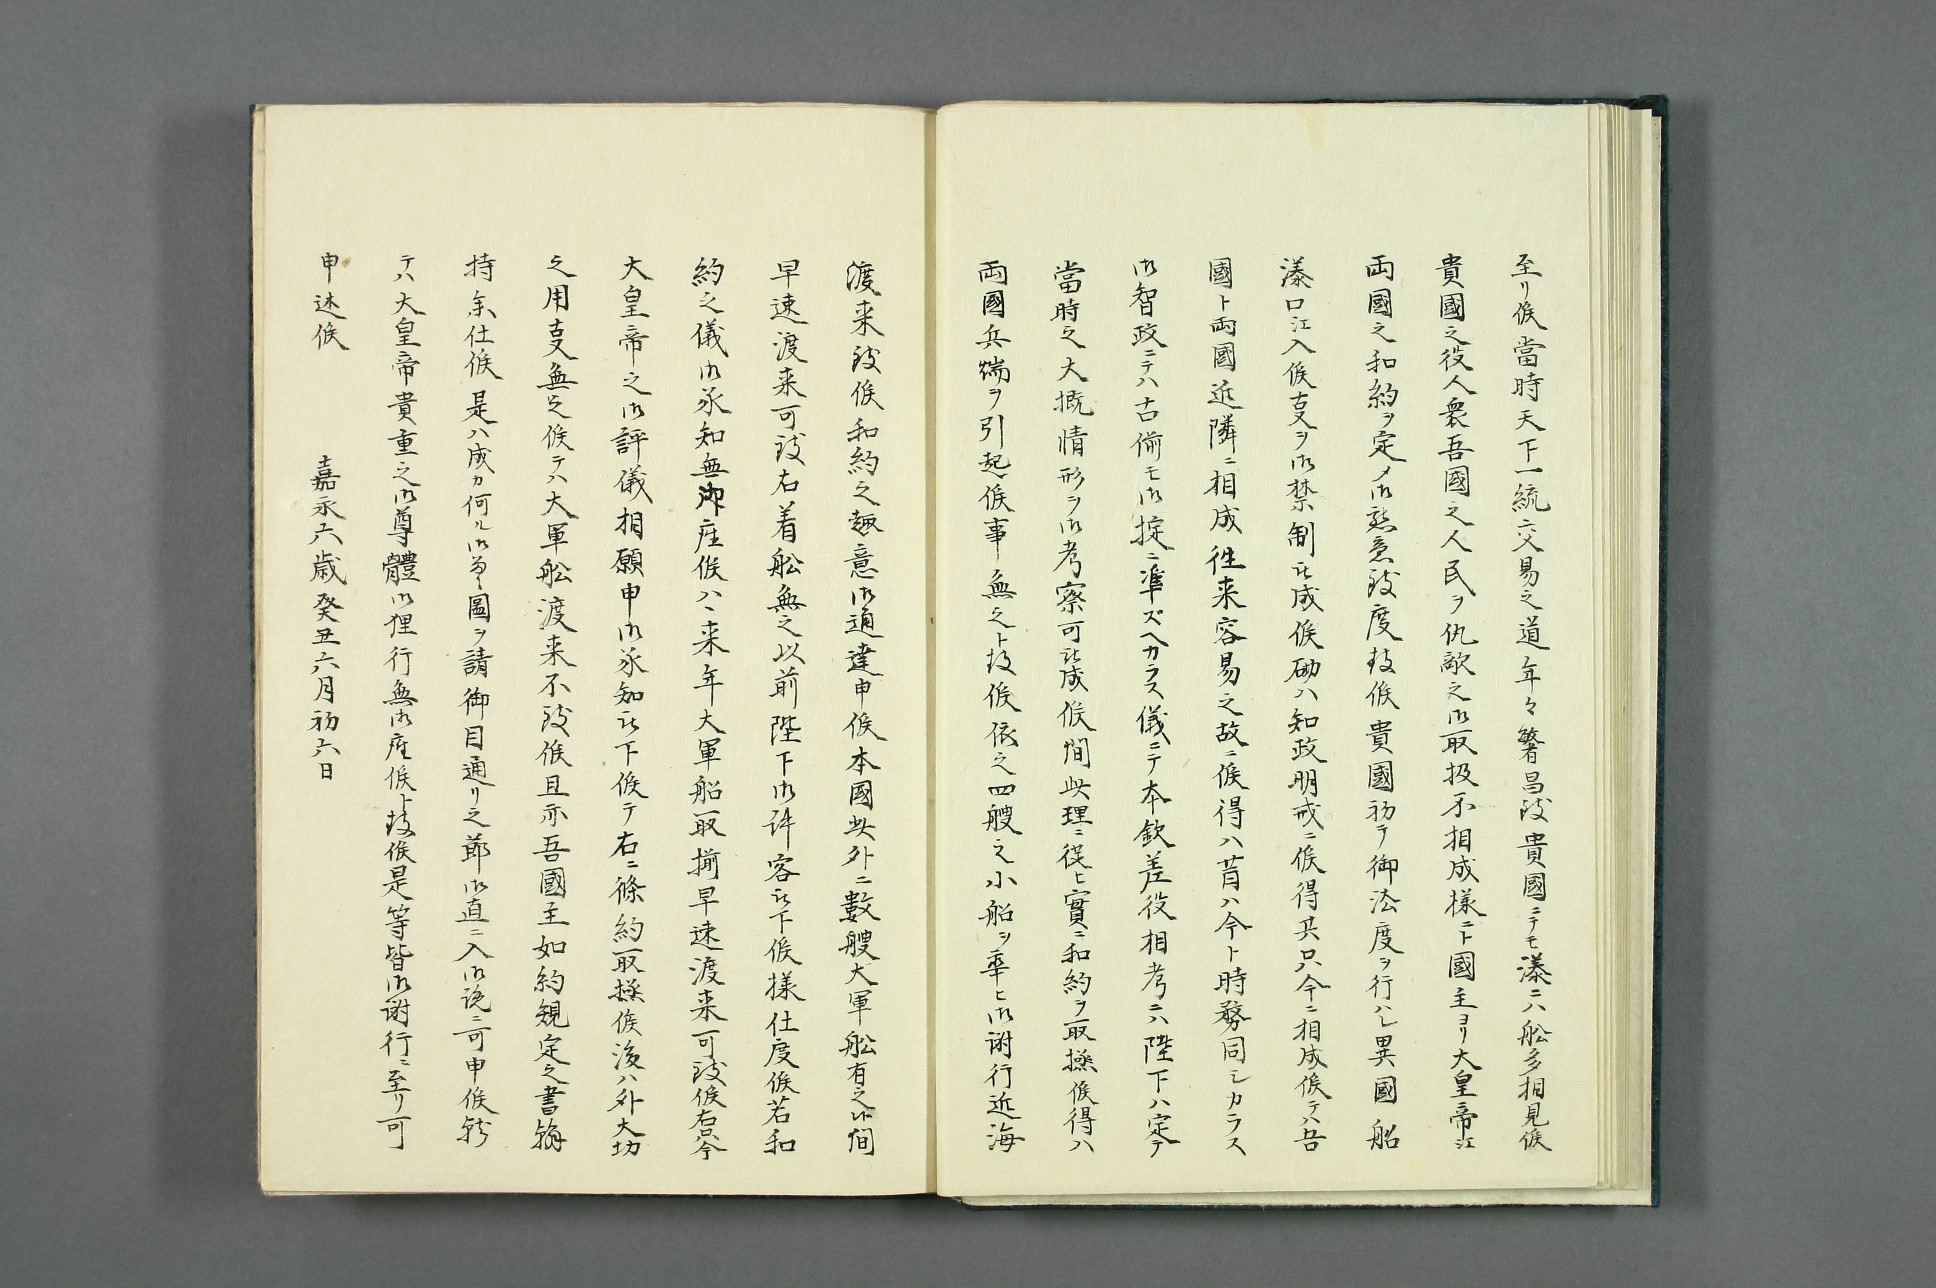 至リ候當時天下一統交易之道年々繁昌致貴國ニテモ湊ニハ舩多相見候
貴國之役人衆吾國之人民ヲ仇敵之御取扱不相成樣ニト國主ヨリ大皇帝江
両國之和約ヲ定メ御懇意致度存候貴國初テ御法度ヲ行ハレ異國船
湊口江入候支ヲ御禁制被成候砌ハ知政明戒ニ候得共只今ニ相成候テハ吾
國ト両國近隣ニ相成徃来容易之故ニ候得ハ昔ハ今ト時勢同シカラス
御智政ニテハ古備モ御掟ニ準ズヘカラス儀ニテ本欽差役相考ニハ陛下ハ定テ
當時之大概情形ヲ御考察可被成候間此理ニ従ヒ實ニ和約ヲ取極候得ハ
両國兵端ヲ引起候事無之ト存候依之四艘之小船ヲ率ヒ御謝行近海
渡来致候和約之趣意御通達申候本國此外ニ數艘大軍舩有之候間
早速渡来可致右着舩無之以前陛下御許容被下候樣仕度候若和
約之儀御承知無御座候ハヽ来年大軍船取揃早速渡来可致候右只今
大皇帝之御評儀相願申御承知被下候テ右ニ條約取極候後ハ外大切
之用支無之候テハ大軍舩渡来不致候且亦吾國主如約規定之書翰
持参仕候是ハ成カ何ル御圖ヲ請御目通リ之節御直ニ入御覧ニ可申候就
テハ大皇帝貴重之御尊體御狸行無御座候ト存候是等皆御謝行ニ至リ可
申述候　嘉永六歳癸丑六月初六日